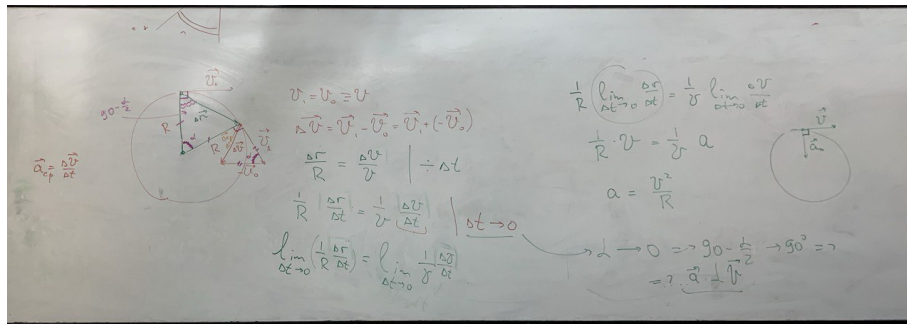 v⃗₀
90-α/2
R
Δr⃗
α
R
Δv⃗
v⃗₁
-v⃗₀
a⃗ср = Δv⃗/Δt
v₁ = v₀ ≡ v
Δv⃗ = v⃗₁ - v⃗₀ = v⃗₁ + (-v⃗₀)
Δr/R = Δv/v | ÷ Δt
1/R Δr/Δt = 1/v Δv/Δt | Δt → 0
lim Δt→0 (1/R Δr/Δt) = lim Δt→0 1/v Δv/Δt
1/R lim Δt→0 Δr/Δt = 1/v lim Δt→0 Δv/Δt
1/R · v = 1/v a
a = v²/R
α → 0 => 90 - α/2 → 90° =>
=> a⃗ ⊥ v⃗
v⃗
a⃗